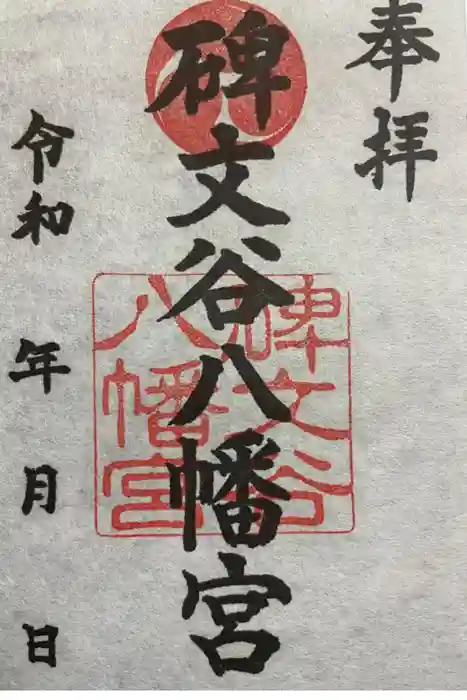 奉拝
碑文谷八幡宮
碑文谷
八幡宮
令和 年 月 日